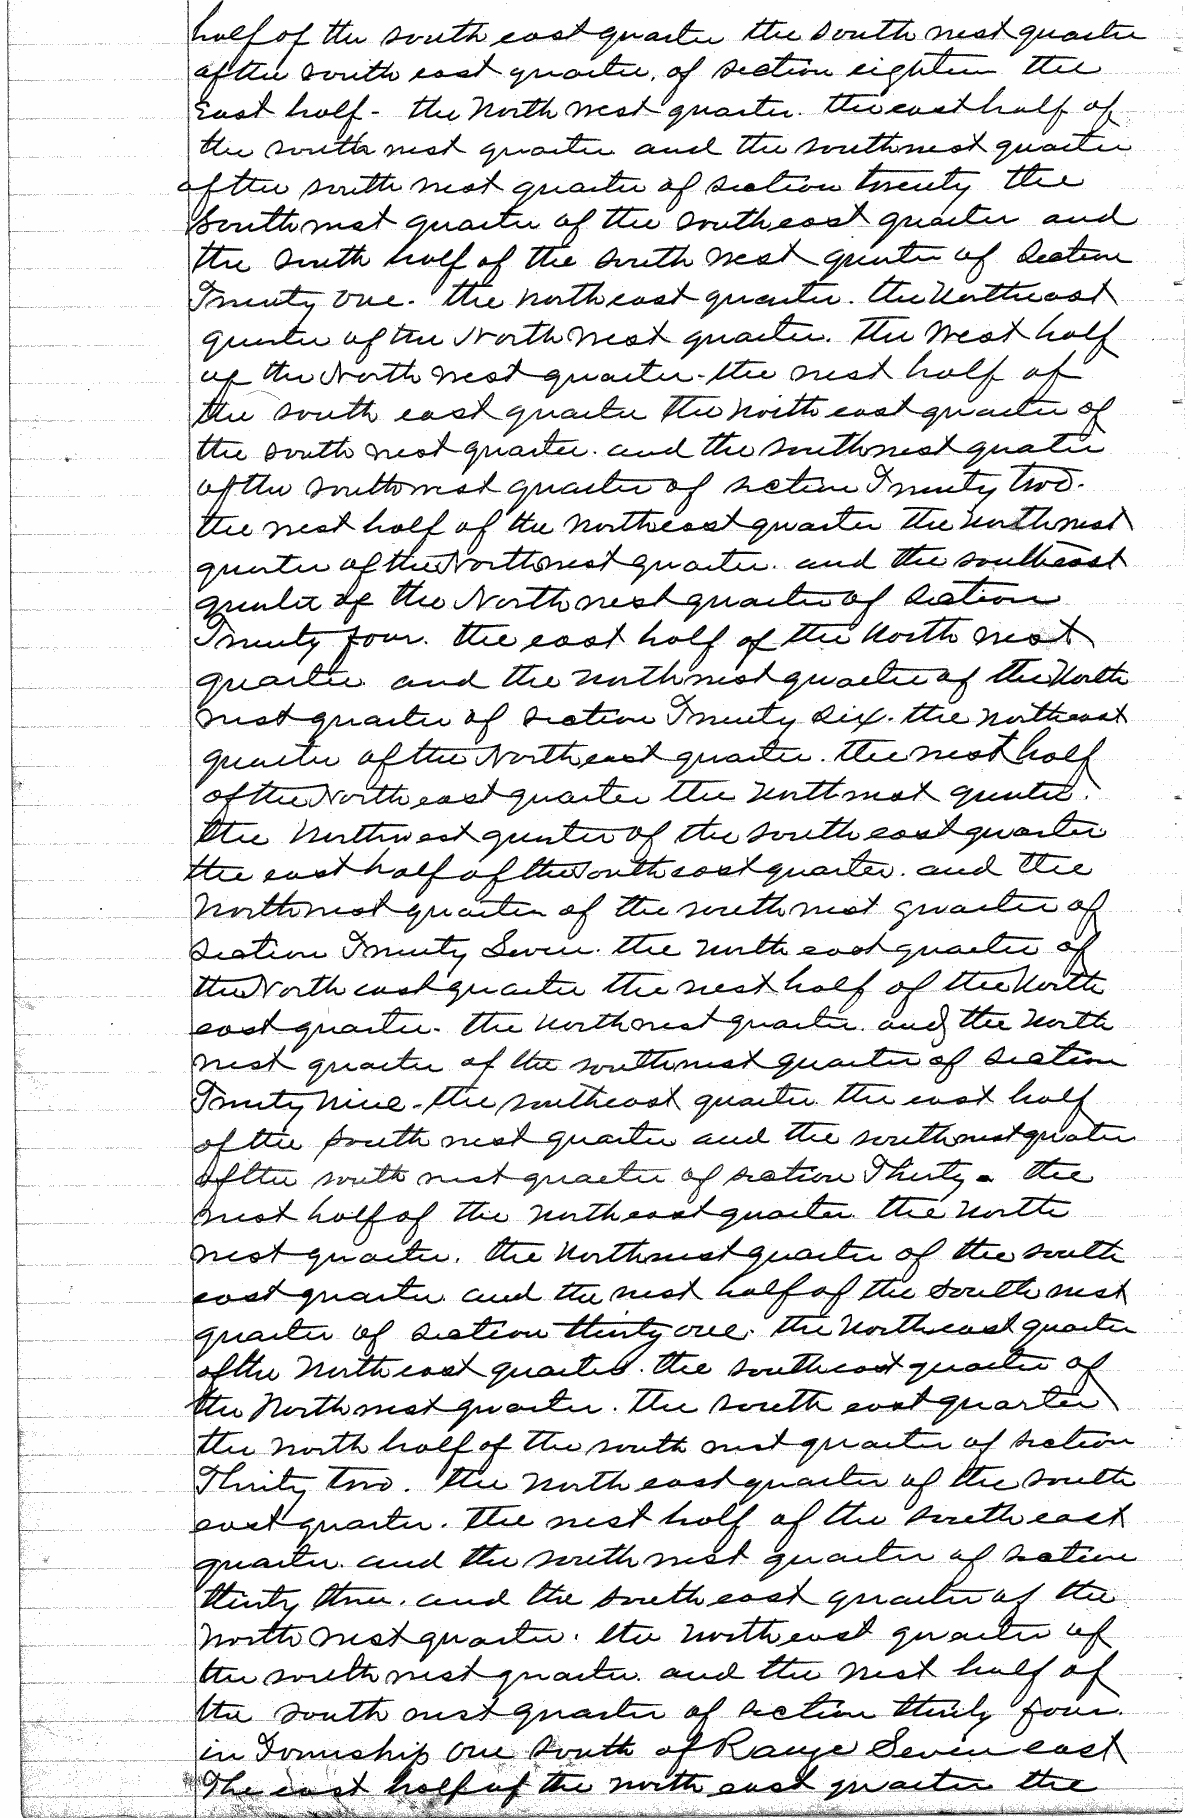 half of the south east quarter the south west quarter
of the south east quarter, of section eighteen the
East half - the North west quarter. the east half of
the south west quarter and the southwest quarter
of the south west quarter of section twenty the
Southwest quarter of the southeast quarter and
the south half of the south west quarter of section
Twenty one. the northeast quarter. the Northeast
quarter of the North West quarter. the West half
of the North west quarter - the west half of
the south east quarter the north east quarter of
the south west quarter. and the southwest quarter
of the southwest quarter of section Twenty two.
the west half of the northeast quarter the northwest
quarter of the Northwest quarter. and the southeast
quarter of the North west quarter of section
Twenty four. the east half of the North west
quarter and the northwest quarter of the North
west quarter of section Twenty six. the northeast
quarter of the North east quarter. the west half
of the North east quarter the northwest quarter.
the Northwest quarter of the south east quarter
the east half of the South east quarter. and the
Northwest quarter of the southwest quarter of
section Twenty Seven. the north east quarter of
the North east quarter the west half of the North
east quarter. the Northwest quarter. and the North
west quarter of the southwest quarter of section
Twenty Nine - the southeast quarter the east half
of the South west quarter and the southwest quarter
of the south west quarter of section Thirty. the
west half of the northeast quarter the North
west quarter. the Northwest quarter of the south
east quarter and the west half of the South west
quarter of section thirty one. the Northeast quarter
of the North east quarter. the southeast quarter of
the Northwest quarter. the south east quarter
the north half of the south west quarter of section
Thirty two. the North east quarter of the south
east quarter. the west half of the south east
quarter and the south west quarter of section
thirty three. and the south east quarter of the
North west quarter. the northeast quarter of
the south west quarter. and the west half of
the south west quarter of section thirty four.
in Township One South of Range Seven east
The east half of the north east quarter the